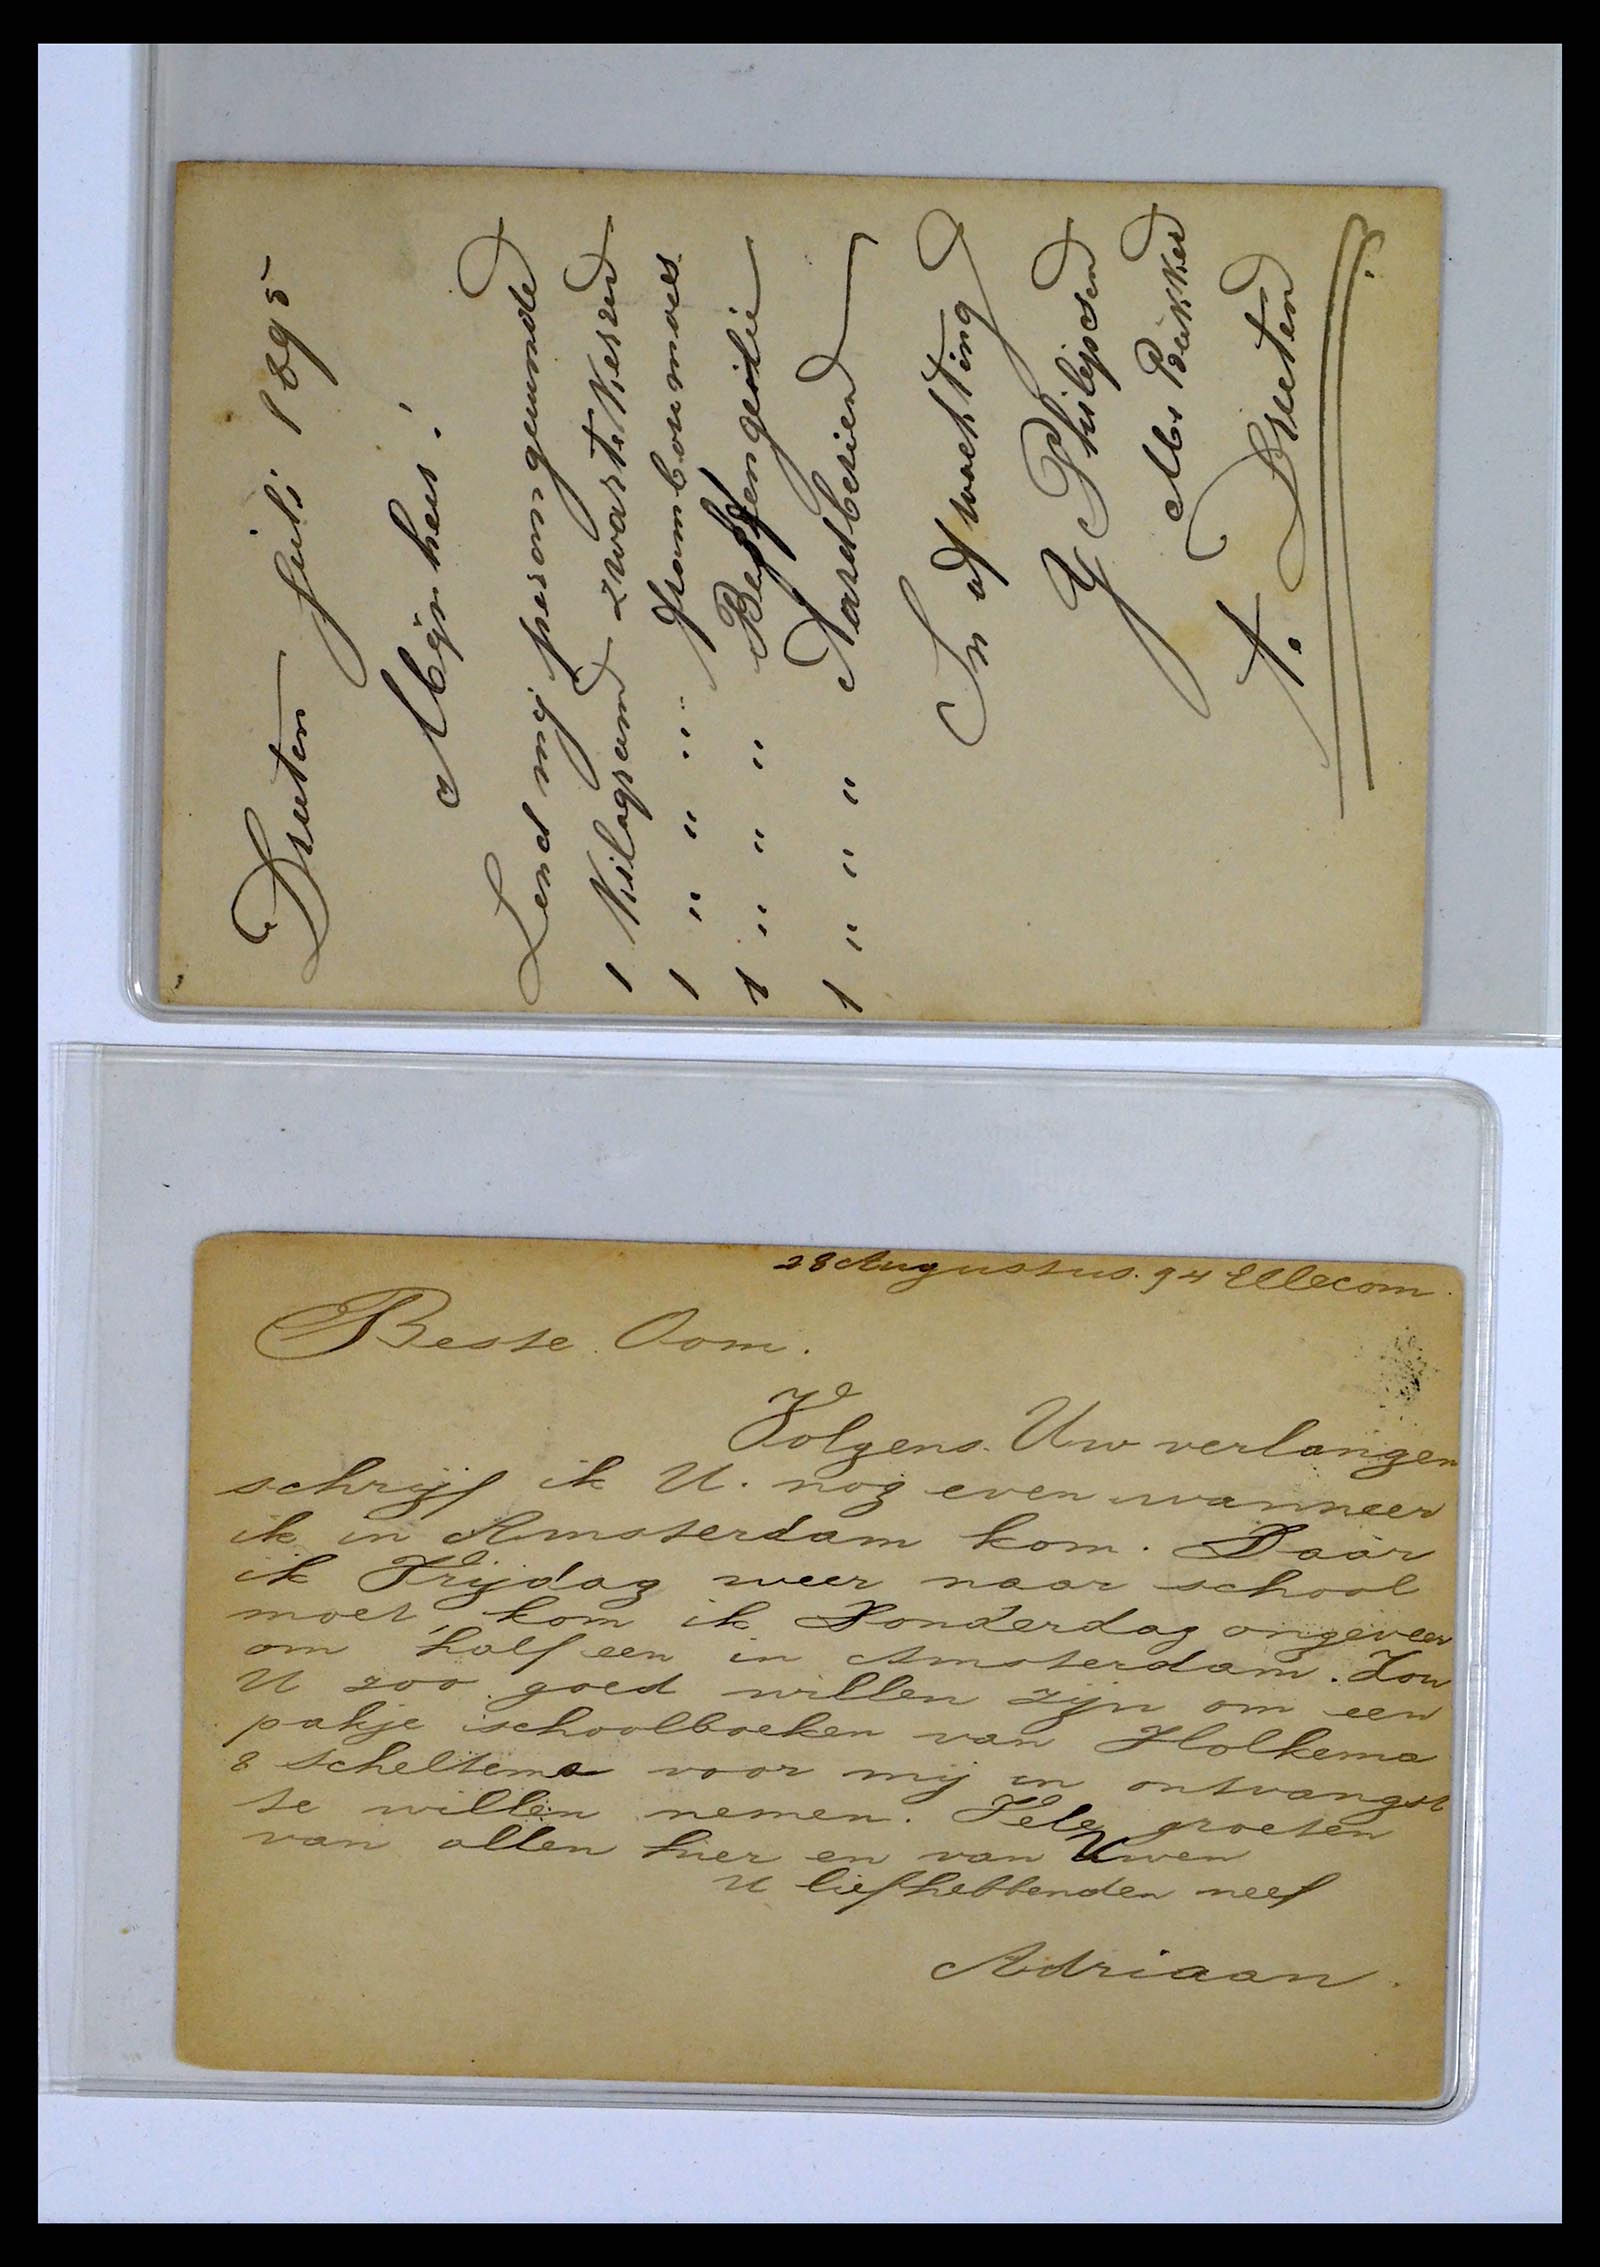 Druten Juli 1895
Mijnheer!
Send mij per omgaande
1 Kilogram zwarte Kersen
1 " " " Frambounoes
1 " " " Bessengelei
1 " " " Aardbesien
In afwachting
Y Philipsen
Mr Bakker
A. Druten
28 Augustus. 94 Ellecom.
Beste Oom.
Volgens Uw verlangen
schrijf ik U. nog even wanneer
ik in Amsterdam kom. Daar
ik Vrijdag weer naar school
moet, kom ik Donderdag ongeveer
om half een in Amsterdam. Zou
U zoo goed willen zijn om een
pakje schoolboeken van Holkema
& Scheltema voor mij in ontvangst
te willen nemen. Vele groeten
van allen hier en van Uwen
U liefhebbenden neef
Adriaan.